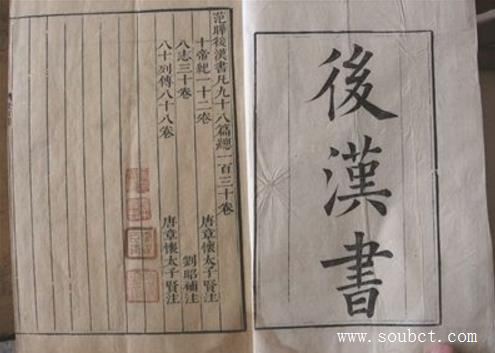 後漢書
范曄後漢書凡九十八篇總一百三十卷
十帝紀一十二卷 唐章懷太子賢注
八志三十卷 劉昭補注
八十列傳八十八卷 唐章懷太子賢注
www.soubct.com